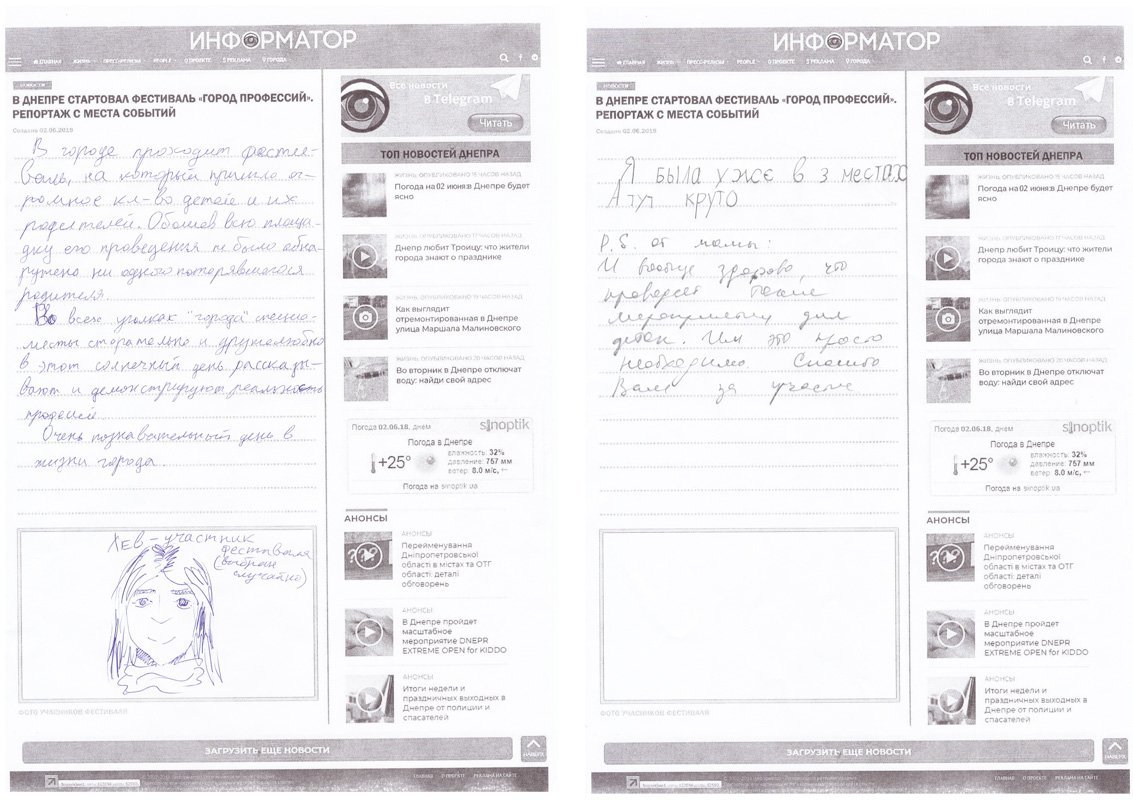 ИНФОРМАТОР
ГЛАВНАЯ ЖИЗНЬ ПРЕСС-РЕЛИЗЫ PEOPLE О ПРОЕКТЕ РЕКЛАМА ГОРОДА
НОВОСТИ
В ДНЕПРЕ СТАРТОВАЛ ФЕСТИВАЛЬ «ГОРОД ПРОФЕССИЙ».
РЕПОРТАЖ С МЕСТА СОБЫТИЙ
Создано 02.06.2018
В городе проходит фести-
валь, на который пришло ог-
ромное кл-во детей и их
родителей. Обошев всю площа-
дку его проведения и было обна-
ружено ни одного потерявшегося
родителя.
Во всех уголках "города"
старательно и дружелюбно
в этот солнечный день расскazы-
вают и демонстрируют реальность
Очень познавательный день в
жизни города.
ХЕВ - участник
фестиваля
(выбрано
случайно)
ФОТО УЧАСНИКОВ ФЕСТИВАЛЯ
Все новости
в Telegram
Читать
ТОП НОВОСТЕЙ ДНЕПРА
ЖИЗНЬ ОПУБЛИКОВАНО 15 ЧАСОВ НАЗАД
Погода на 02 июня:в Днепре будет
ясно
ЖИЗНЬ ОПУБЛИКОВАНО 17 ЧАСОВ НАЗАД
Днепр любит Троицу: что жители
города знают о празднике
ЖИЗНЬ ОПУБЛИКОВАНО 19 ЧАСОВ НАЗАД
Как выглядит
отремонтированная в Днепре
улица Маршала Малиновского
ЖИЗНЬ ОПУБЛИКОВАНО 20 ЧАСОВ НАЗАД
Во вторник в Днепре отключат
воду: найди свой адрес
Погода 02.06.18, днем sinoptik
Погода в Днепре
+25°
влажность: 32%
давление: 757 мм
ветер: 8.0 м/с, ←
Погода на sinoptik.ua
АНОНСЫ
АНОНСЫ
Перейменування
Дніпропетровської
області в містах та ОТГ
області: деталі
обговорень
АНОНСЫ
В Днепре пройдет
масштабное
мероприятие DNEPR
EXTREME OPEN for KIDDO
АНОНСЫ
Итоги недели и
праздничных выходных в
Днепре от полиции и
спасателей
ЗАГРУЗИТЬ ЕЩЕ НОВОСТИ
НАВЕРХ
ГЛАВНАЯ О ПРОЕКТЕ РЕКЛАМА НА САЙТЕ
ИНФОРМАТОР
ГЛАВНАЯ ЖИЗНЬ ПРЕСС-РЕЛИЗЫ PEOPLE О ПРОЕКТЕ РЕКЛАМА ГОРОДА
НОВОСТИ
В ДНЕПРЕ СТАРТОВАЛ ФЕСТИВАЛЬ «ГОРОД ПРОФЕССИЙ».
РЕПОРТАЖ С МЕСТА СОБЫТИЙ
Создано 02.06.2018
Я БЫЛА УЖЕ В 3 местАХ
А тут КРУТО
P.S. от мамы:
И вообще здорово, что
такие
мероприятия для
деток. Им это просто
необходимо Спасибо
Вам за участие
ФОТО УЧАСНИКОВ ФЕСТИВАЛЯ
Все новости
в Telegram
Читать
ТОП НОВОСТЕЙ ДНЕПРА
ЖИЗНЬ ОПУБЛИКОВАНО 15 ЧАСОВ НАЗАД
Погода на 02 июня:в Днепре будет
ясно
ЖИЗНЬ ОПУБЛИКОВАНО 17 ЧАСОВ НАЗАД
Днепр любит Троицу: что жители
города знают о празднике
ЖИЗНЬ ОПУБЛИКОВАНО 19 ЧАСОВ НАЗАД
Как выглядит
отремонтированная в Днепре
улица Маршала Малиновского
ЖИЗНЬ ОПУБЛИКОВАНО 20 ЧАСОВ НАЗАД
Во вторник в Днепре отключат
воду: найди свой адрес
Погода 02.06.18, днем sinoptik
Погода в Днепре
+25°
влажность: 32%
давление: 757 мм
ветер: 8.0 м/с, ←
Погода на sinoptik.ua
АНОНСЫ
АНОНСЫ
Перейменування
Дніпропетровської
області в містах та ОТГ
області: деталі
обговорень
АНОНСЫ
В Днепре пройдет
масштабное
мероприятие DNEPR
EXTREME OPEN for KIDDO
АНОНСЫ
Итоги недели и
праздничных выходных в
Днепре от полиции и
спасателей
ЗАГРУЗИТЬ ЕЩЕ НОВОСТИ
НАВЕРХ
ГЛАВНАЯ О ПРОЕКТЕ РЕКЛАМА НА САЙТЕ